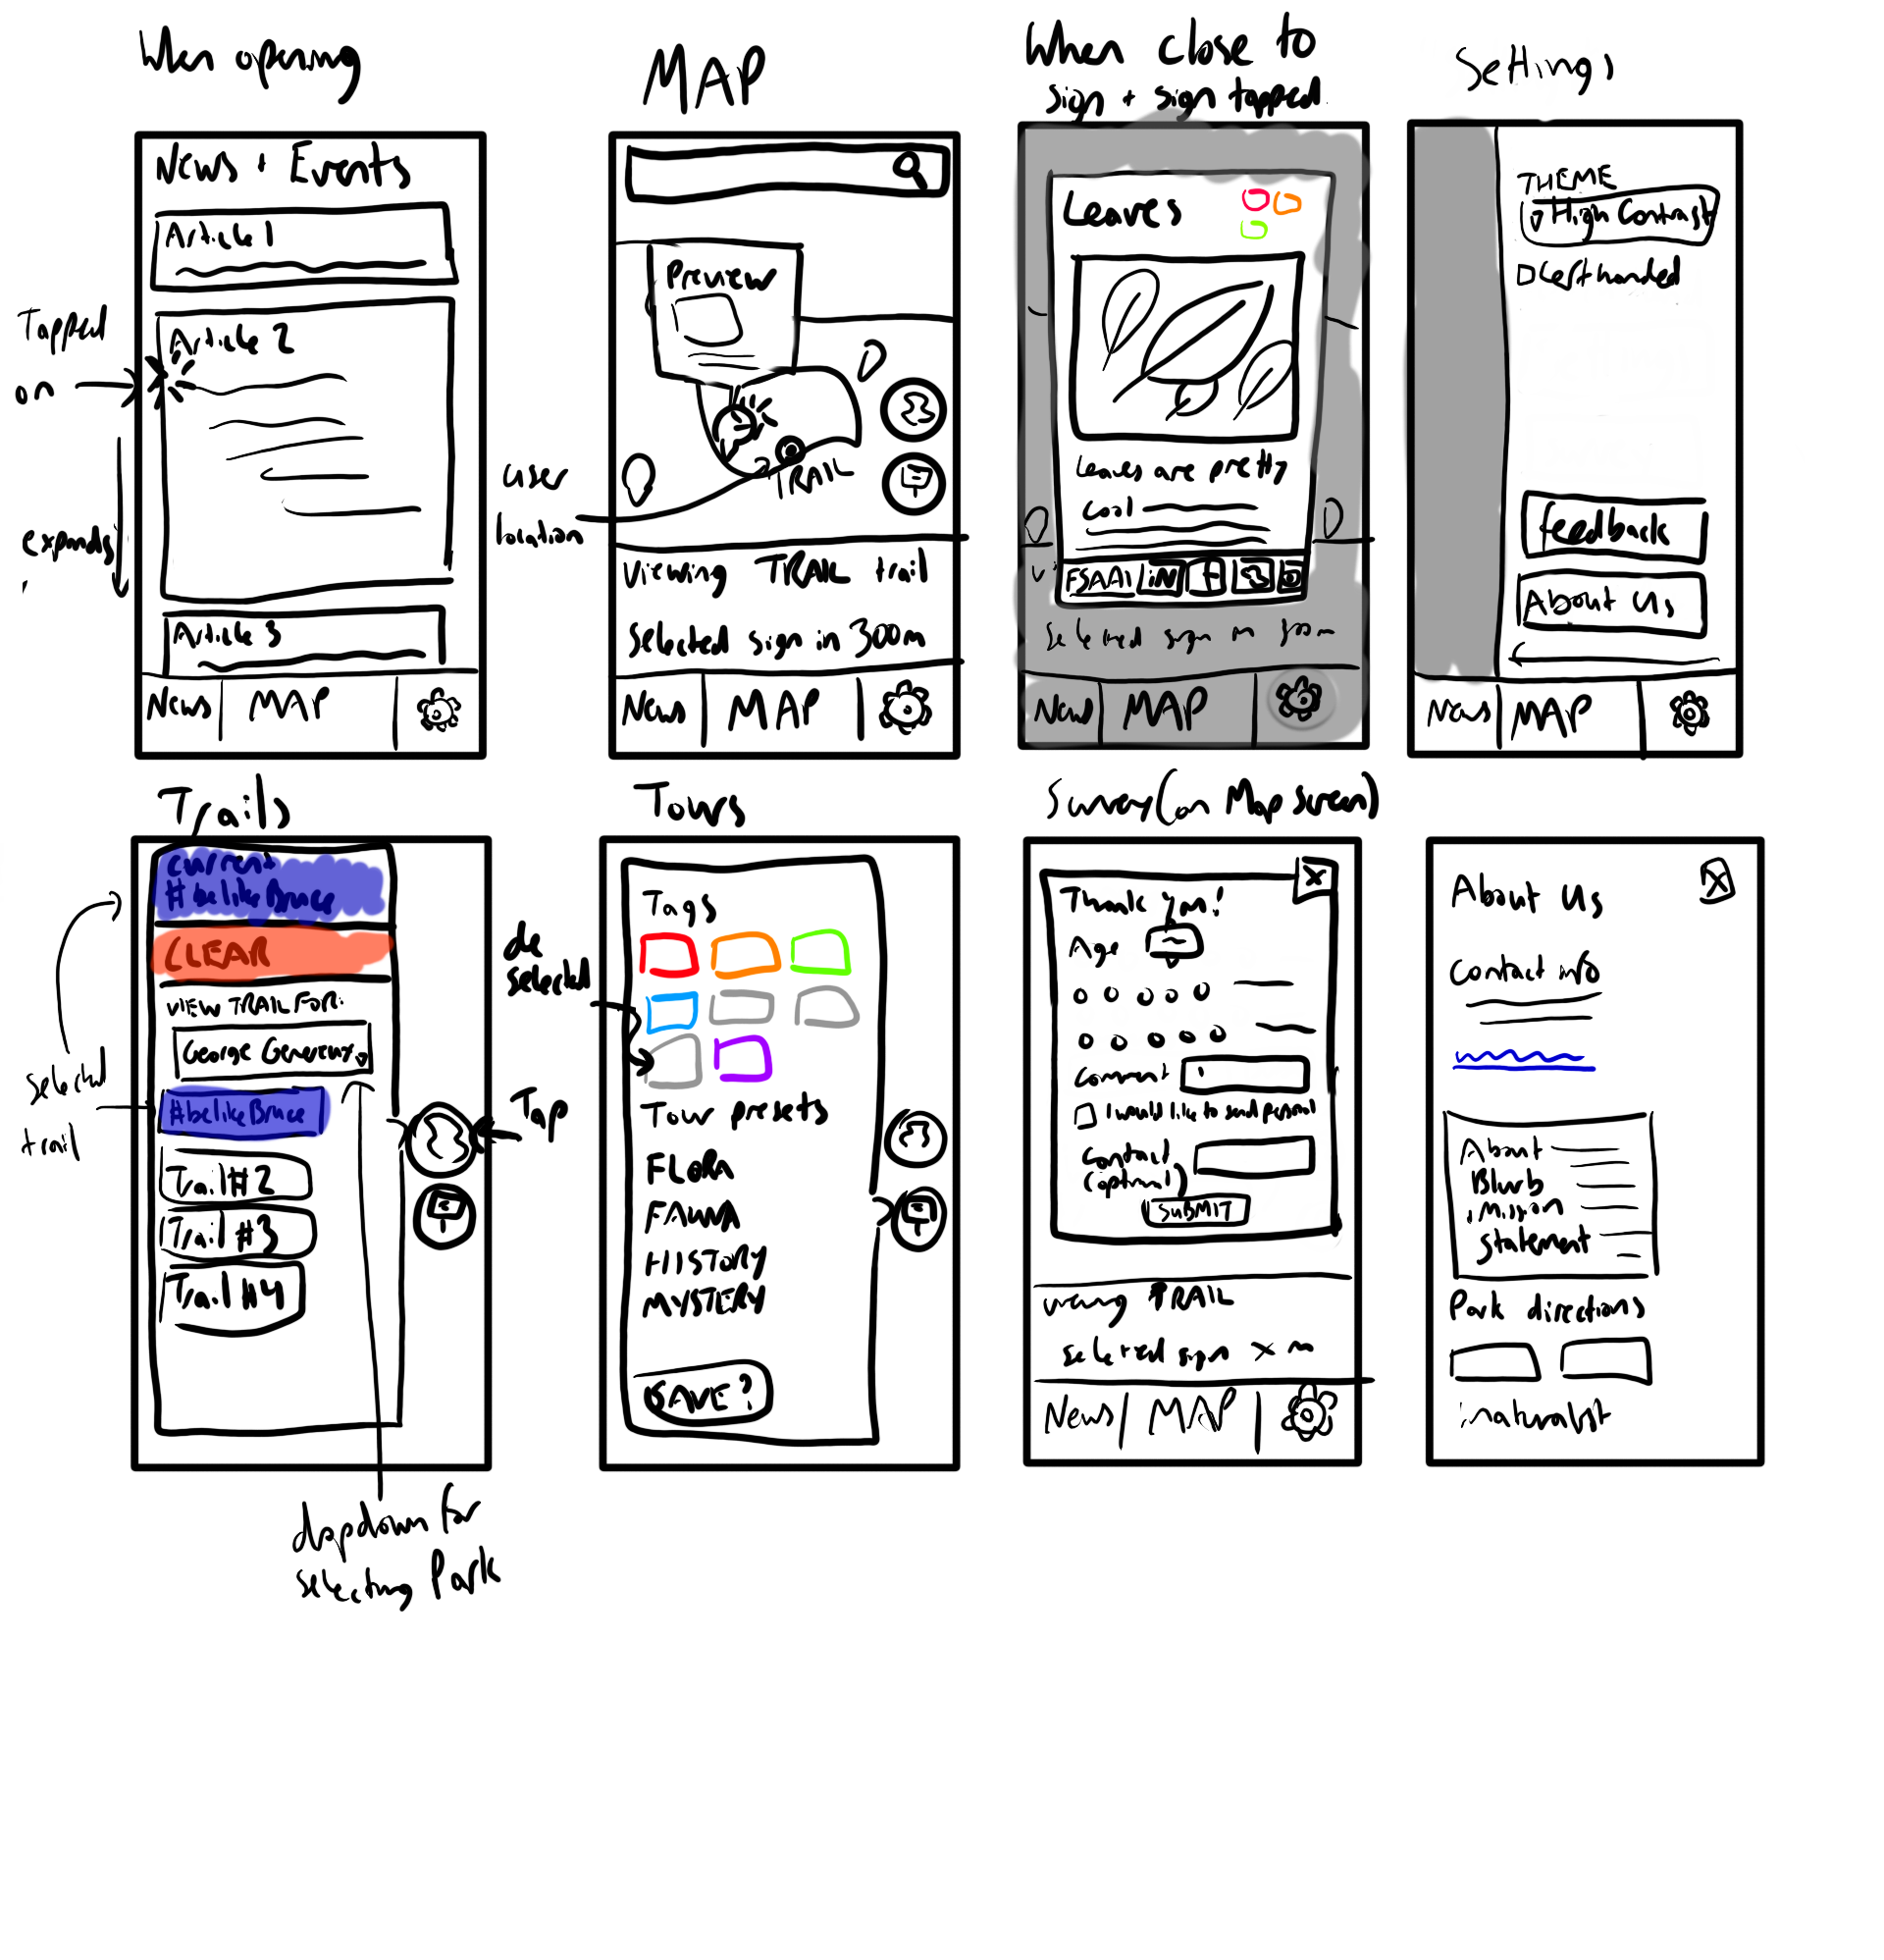 When opening
News + Events
Article 1
Tapped
on
Article 2
expands
Article 3
News MAP
MAP
Preview
TRAIL
user
location
Viewing TRAIL trail
Selected sign in 300m
News MAP
When close to
sign + sign tapped
Leaves
Leaves are pretty
cool
FSAA1 iN f
Selected sign in 300m
News MAP
Settings
THEME
High Contrast
Left handed
feedback
About Us
News MAP
Trails
current
#belikeBruce
CLEAR
VIEW TRAIL FOR:
George Genereux
#belikeBruce
Trail #2
Trail #3
Trail #4
selected
trail
Tap
dropdown for
selecting Park
Tours
Tags
de
selected
Tour presets
FLORA
FAUNA
HISTORY
MYSTERY
SAVE?
Survey (on Map screen)
X
Thank you!
Age
Comment
I would like to send personal
Contact
(optional)
SUBMIT
TRAIL
selected sign x m
News MAP
About Us
X
Contact info
About
Blurb
Mission
Statement
Park directions
inaturalist